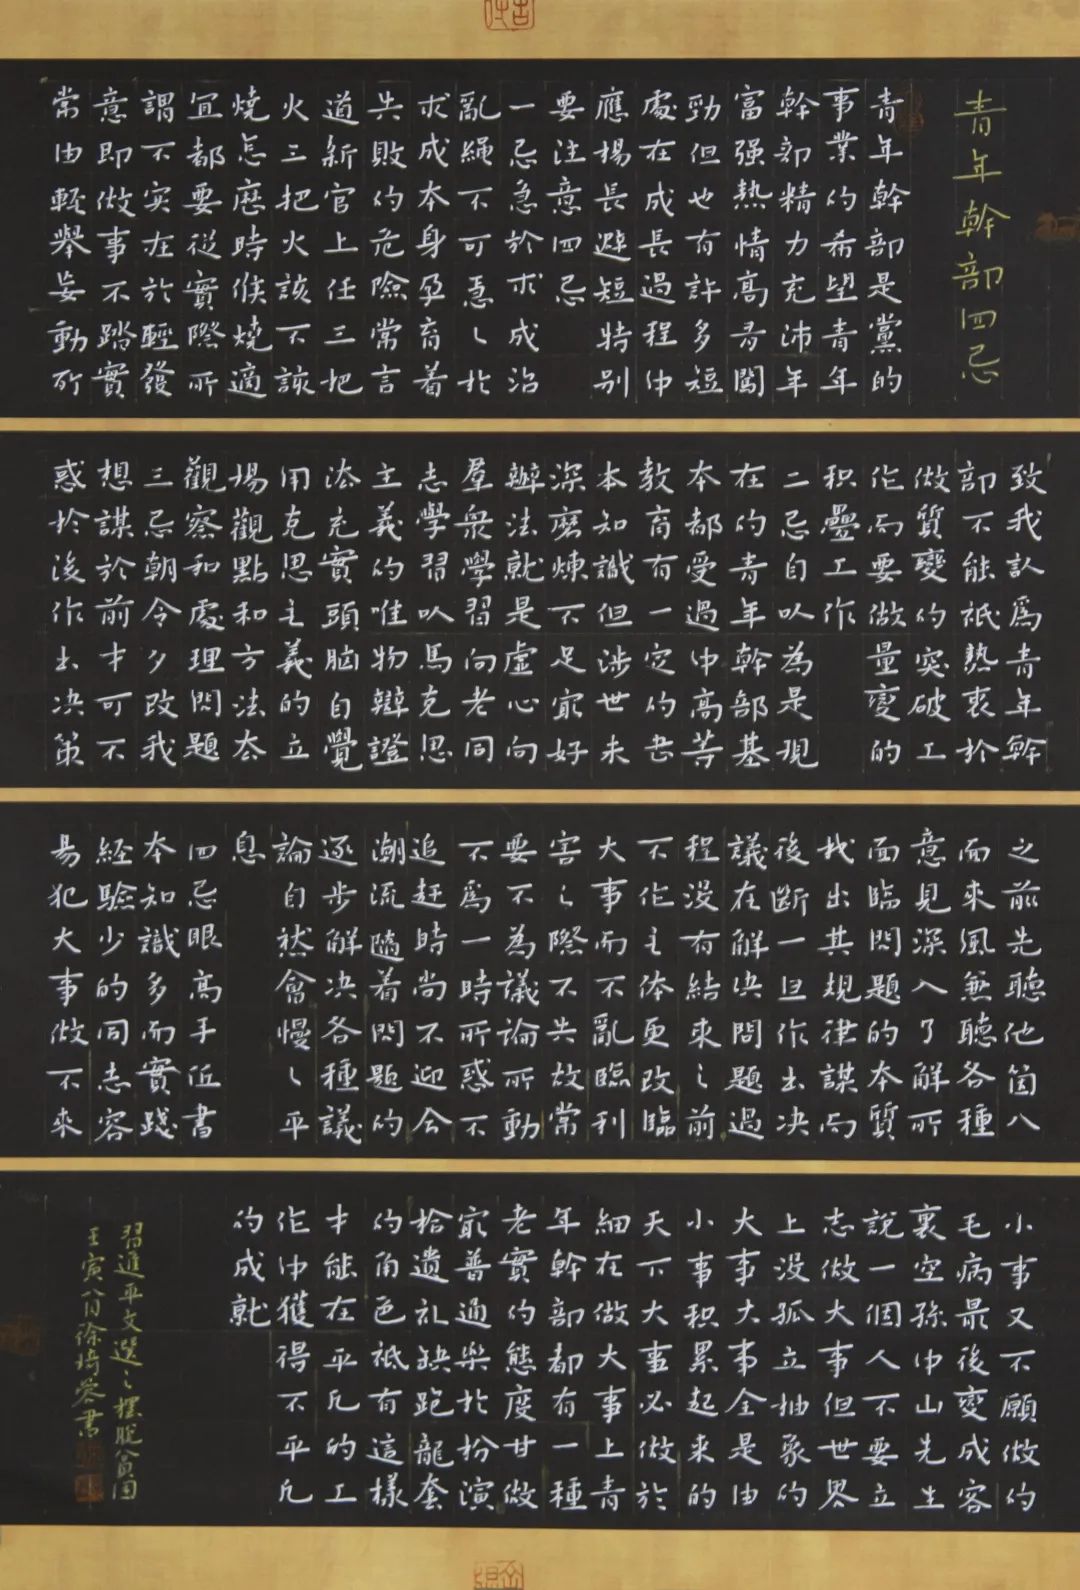 青年幹部四忌
青年幹部是黨的
事業的希望青年
幹部精力充沛年
富强熱情高有闖
勁但也有許多短
處在成長過程中
應揚長避短特别
要注意四忌
一忌急於求成治
亂繩不可急々於
求成本身孕育着
失敗的危險常言
道新官上任三把
火三把火該不該
燒怎麽時候燒適
宜都要從實際所
謂不实在於輕發
意即做事不踏實
常由輕舉妄動所
致我認爲青年幹
部不能祇熱衷於
做質變的突破工
作而要做量變的
积疊工作
二忌自以為是現
在的青年幹部基
本都受過中高等
教育有一定的书
本知識但涉世未
深磨煉不足最好
辦法就是虛心向
羣衆學習向老同
志學習以馬克思
主義的唯物辯證
法充實頭脑自覺
用克思主義的立
場觀點和方法去
觀察和處理問題
三忌朝令夕改我
想謀於前才可不
惑於後作出决策
之前先聽他箇八
面來風兼聽各種
意見深入了解所
面臨問題的本質
找出其規律謀而
後斷一旦作出决
議在解决問題過
程没有結束之前
不作主体更改臨
大事而不亂臨利
害之際不失故常
要不為議論所動
不爲一時所惑不
追赶時尚不迎合
潮流隨着問題的
逐步解决各種議
論自然會慢々平
息
四忌眼高手低書
本知識多而實踐
経驗少的同志容
易犯大事做不來
小事又不願做的
毛病最後變成客
裏空孫中山先生
説一個人不要立
志做大事但世界
上没孤立抽象的
大事大事全是由
小事积累起来的
天下大事必做於
細在做大事上青
年幹部都有一種
老實的態度甘做
最普通樂於扮演
拾遺补缺跑龍套
的角色祇有這樣
才能在平凡的工
作中獲得不平凡
的成就
習進平文選之擺脱貧困
壬寅八月徐琦蓉書